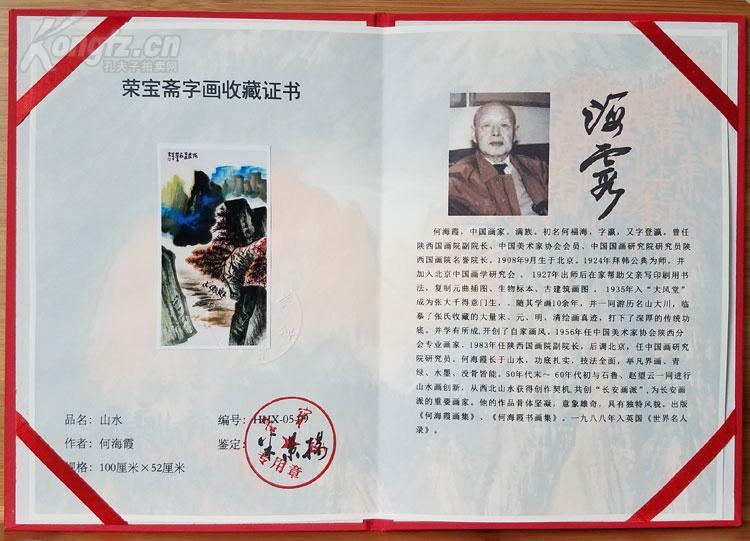 Kongfz.cn
孔夫子拍卖网
荣宝斋字画收藏证书
品名：山水
作者：何海霞
规格：100厘米×52厘米
编号：HHX-05
鉴定：
米景扬
专用章
海霞
何海霞，中国画家。满族。初名何福海，字瀛，又字登瀛。曾任
陕西国画院副院长、中国美术家协会会员、中国国画研究院研究员陕
西国画院名誉院长。1908年9月生于北京。1924年拜韩公典为师，并
加入北京中国画学研究会 。1927年出师后在家帮助父亲写印刷用书
法，复制元曲插图、生物标本、古建筑画图 。1935年入“大风堂”
成为张大千得意门生、。随其学画10余年，并一同游历名山大川，临
摹了张氏收藏的大量宋、元、明、清绘画真迹，打下了深厚的传统功
底。并学有所成,开创了自家画风。1956年任中国美术家协会陕西分
会专业画家。1983年任陕西国画院副院长，后调北京，任中国画研究
院研究员。何海霞长于山水，功底扎实，技法全面，举凡界画、青
绿、水墨、没骨皆能。50年代末～ 60年代初与石鲁、赵望云一同进行
山水画创新，从西北山水获得创作契机,共创“长安画派”,为长安画
派的重要画家。他的作品骨体坚凝，意象雄奇，具有独特风貌。出版
《何海霞画集》、《何海霞书画集》。一九八八年入英国《世界名人
录》。